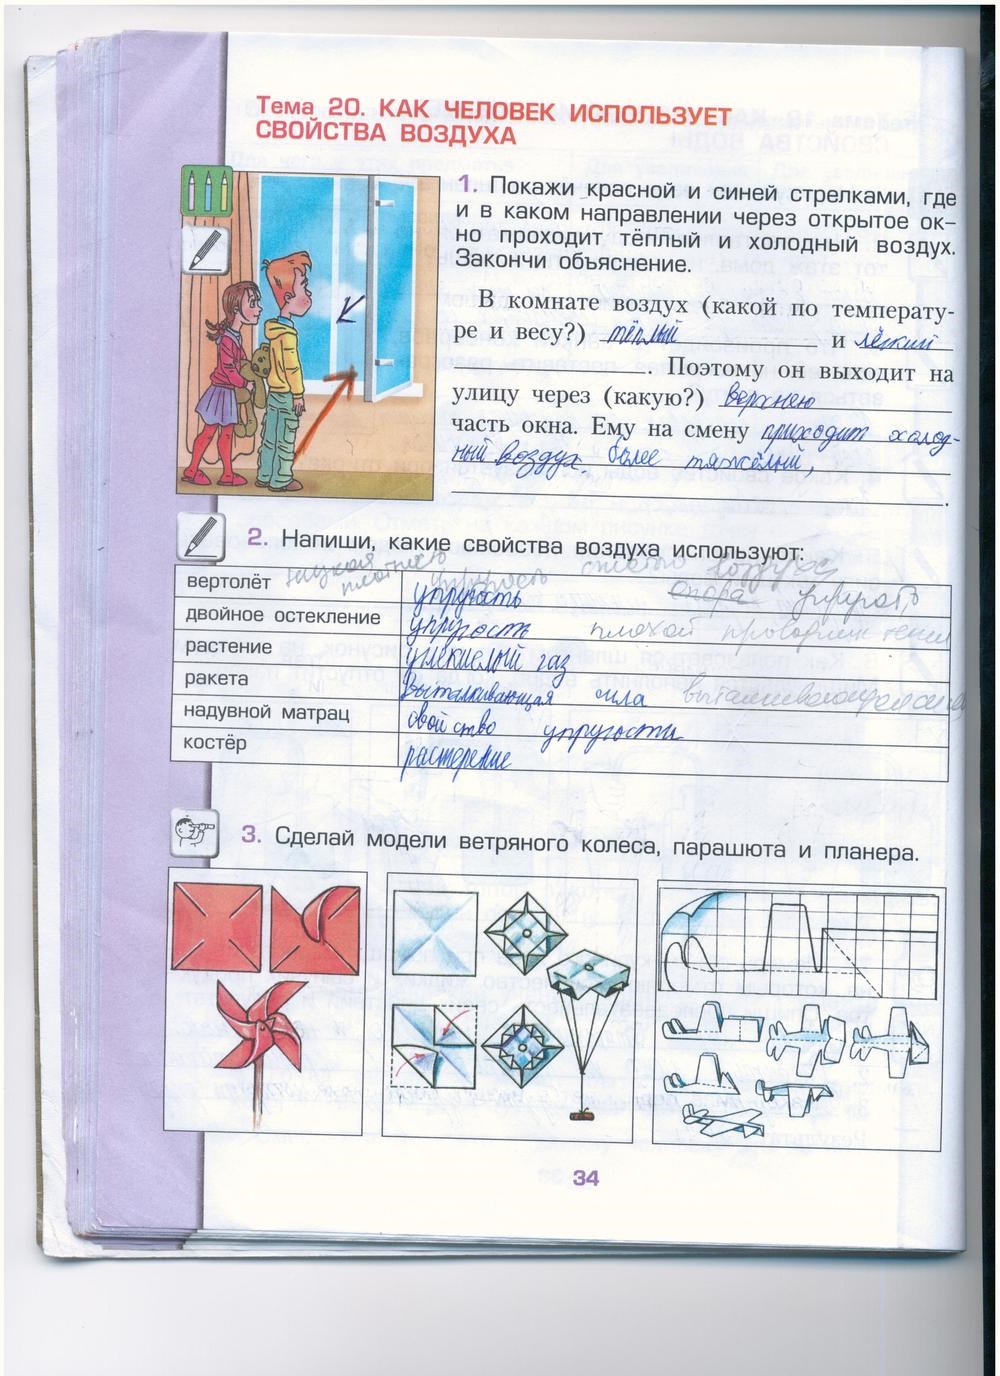 Тема 20. КАК ЧЕЛОВЕК ИСПОЛЬЗУЕТ
СВОЙСТВА ВОЗДУХА
1. Покажи красной и синей стрелками, где
и в каком направлении через открытое ок-
но проходит тёплый и холодный воздух.
Закончи объяснение.
В комнате воздух (какой по температу-
ре и весу?) тёплый и лёгкий
Поэтому он выходит на
улицу через (какую?) верхнею
часть окна. Ему на смену приходит холод-
ный воздух. более тяжёлый,
2. Напиши, какие свойства воздуха используют:
плотность упругость воздуха
вертолёт упругость опора упругость
двойное остекление упругость плохой
растение углекислый газ
ракета выталкивающая сила
надувной матрац свойство упругости
костёр растерение
3. Сделай модели ветряного колеса, парашюта и планера.
34